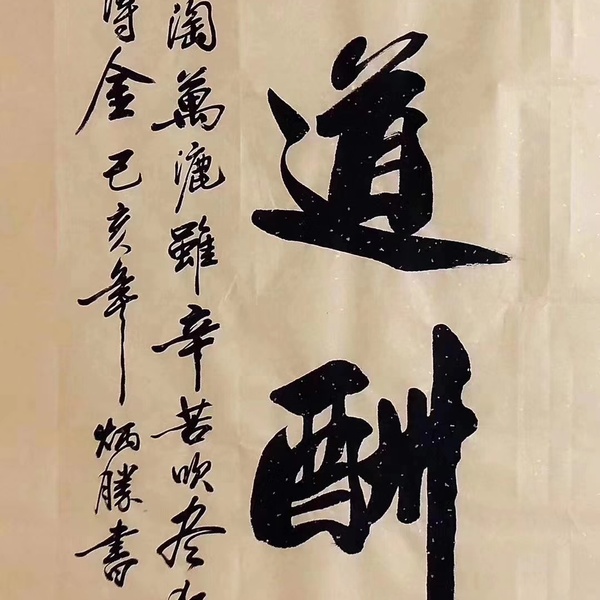 道酬
淘萬漉雖辛苦吹尽
得金己亥年炳勝書